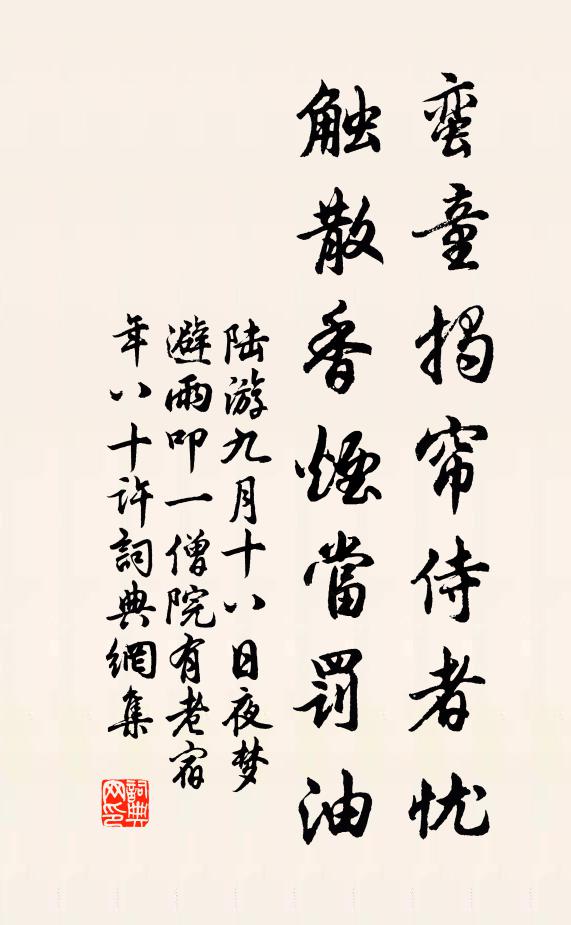 蛮童揭帘侍者忧
触散香煙當罰油
陆游九月十八日夜梦
避雨叩一僧院有老宿
年八十许詞典網集
詞典网印